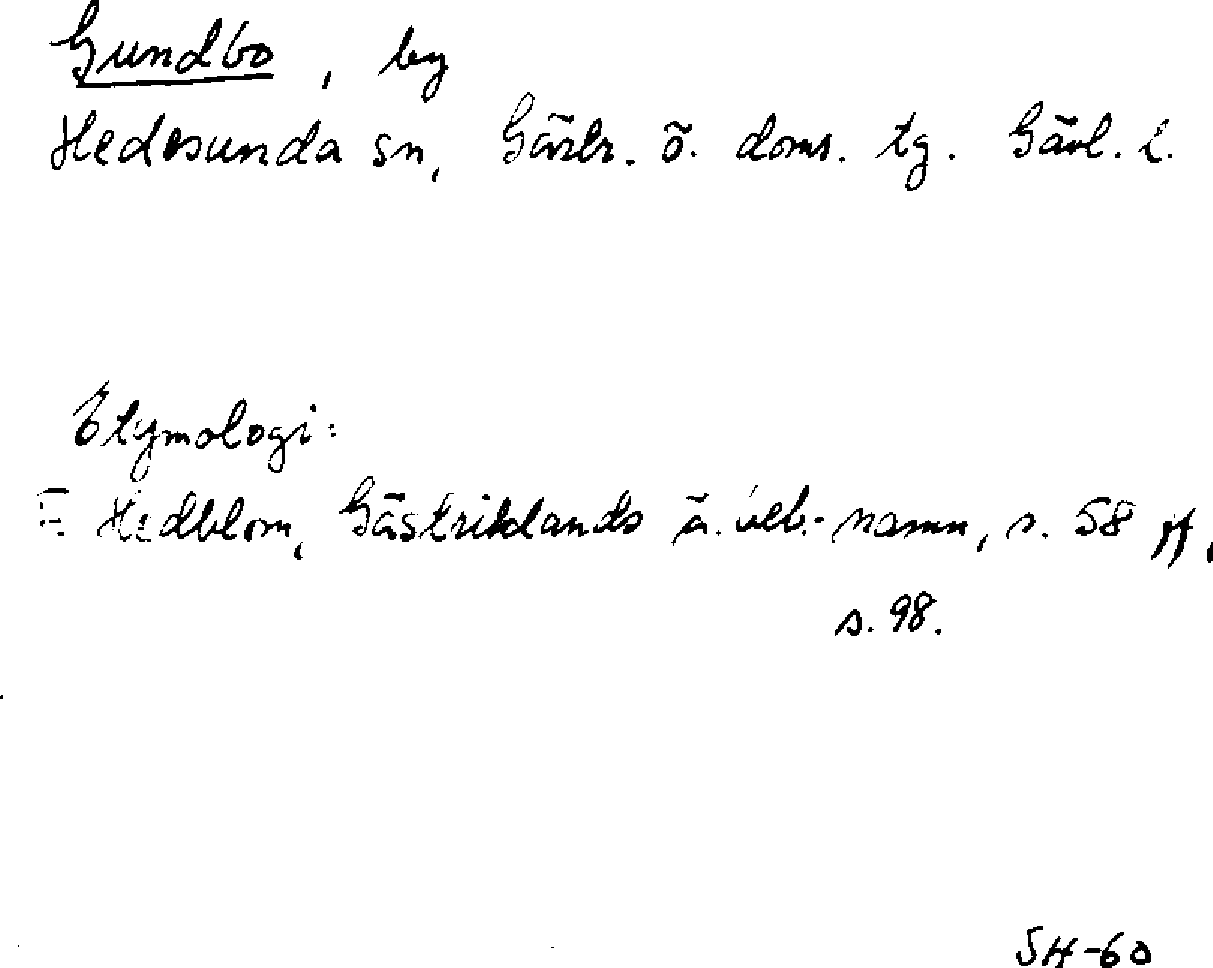 Gundbo, by
Hedesunda sn, Gästr. ö. doms. tg. Gävl. l.
Etymologi:
F. Hedblom, Gästriklands ä. beb.-namn, s. 58 ff,
s. 98.
SH-60